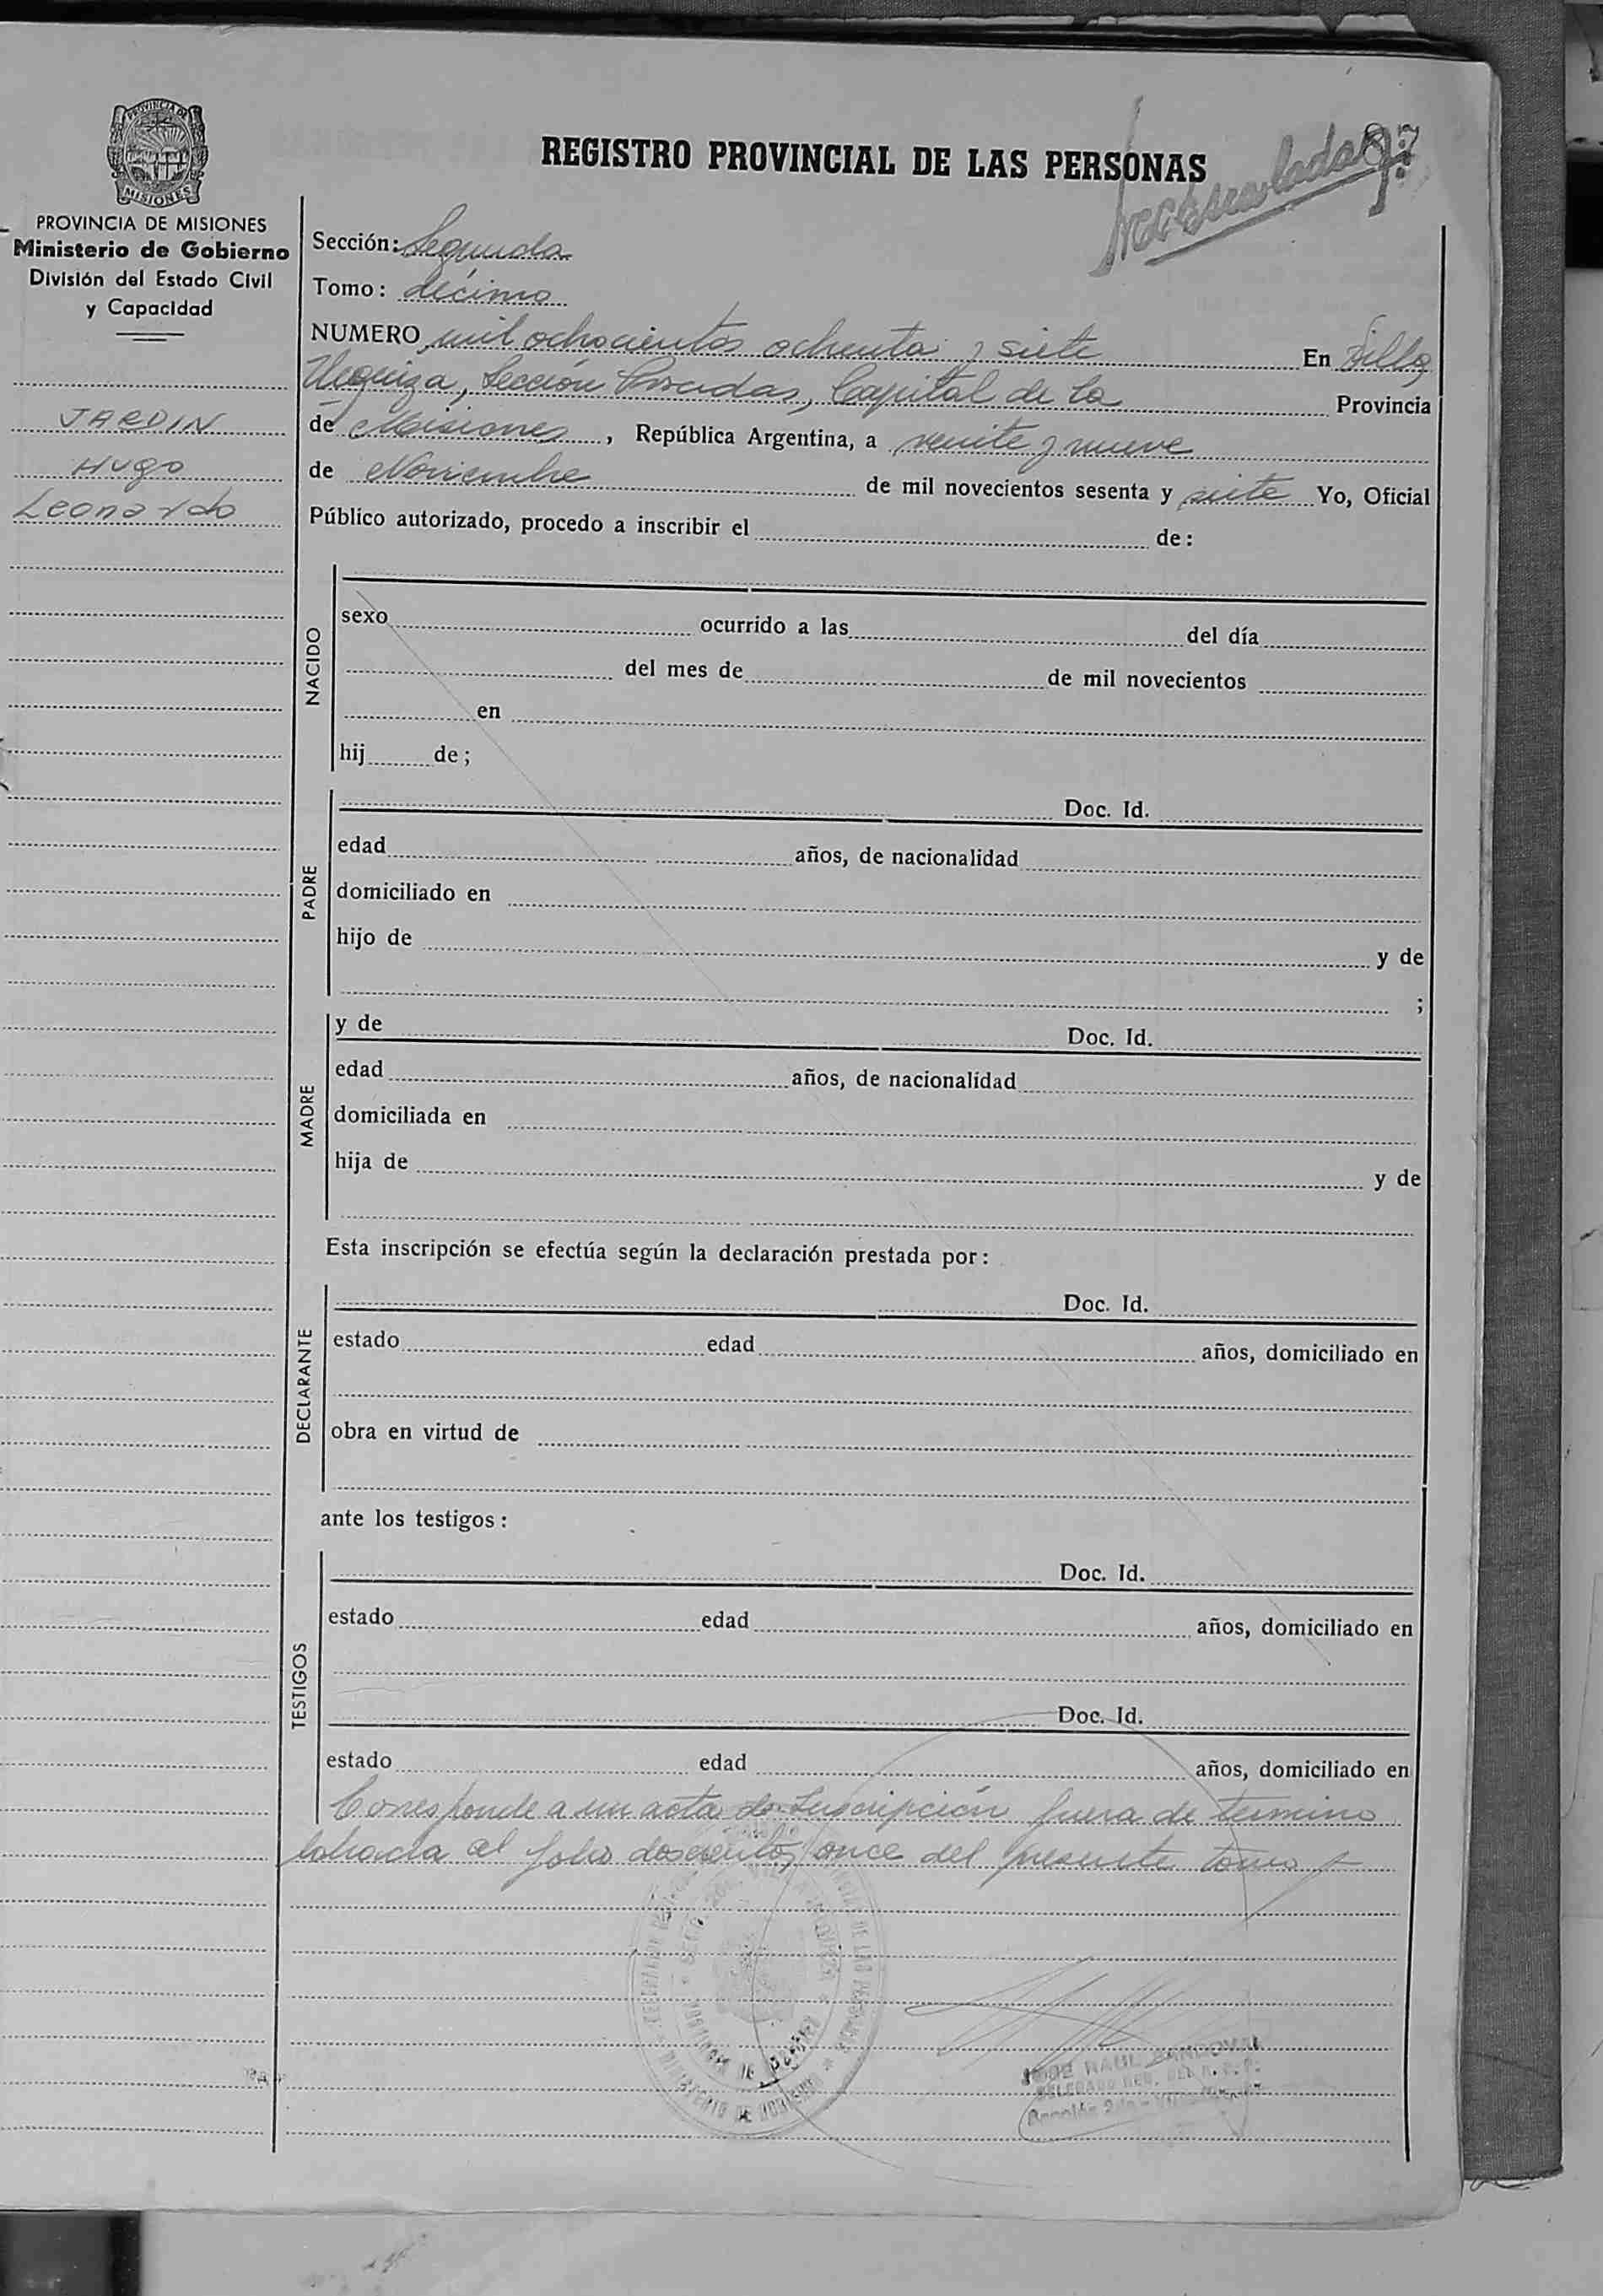 REGISTRO PROVINCIAL DE LAS PERSONAS
87
PROVINCIA DE
MISIONES
PROVINCIA DE MISIONES
Ministerio de Gobierno
División del Estado Civil
y Capacidad
JARDIN
HUGO
Leonardo
Sección: Segunda
Tomo: décimo
NUMERO mil ochocientos ochenta y siete En Villa
Urquiza, Sección Posadas, Capital de la Provincia
de Misiones, República Argentina, a veinte y nueve
de Noviembre de mil novecientos sesenta y siete Yo, Oficial
Público autorizado, procedo a inscribir el de:
NACIDO
sexo ocurrido a las del día
del mes de de mil novecientos
en
hij de;
PADRE
Doc. Id.
edad años, de nacionalidad
domiciliado en
hijo de y de
;
MADRE
y de Doc. Id.
edad años, de nacionalidad
domiciliada en
hija de y de
Esta inscripción se efectúa según la declaración prestada por:
DECLARANTE
Doc. Id.
estado edad años, domiciliado en
obra en virtud de
ante los testigos:
TESTIGOS
Doc. Id.
estado edad años, domiciliado en
Doc. Id.
estado edad años, domiciliado en
Corresponde a un acta de Inscripción fuera de termino
labrada al folio doscientos once del presente tomo
MINISTERIO DE GOBIERNO
JOSE RAUL SANDOVAL